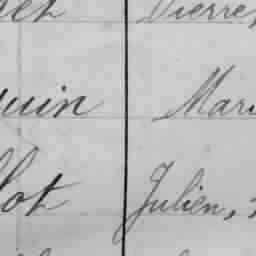 Pierre,
uin Mari
lot Julien,